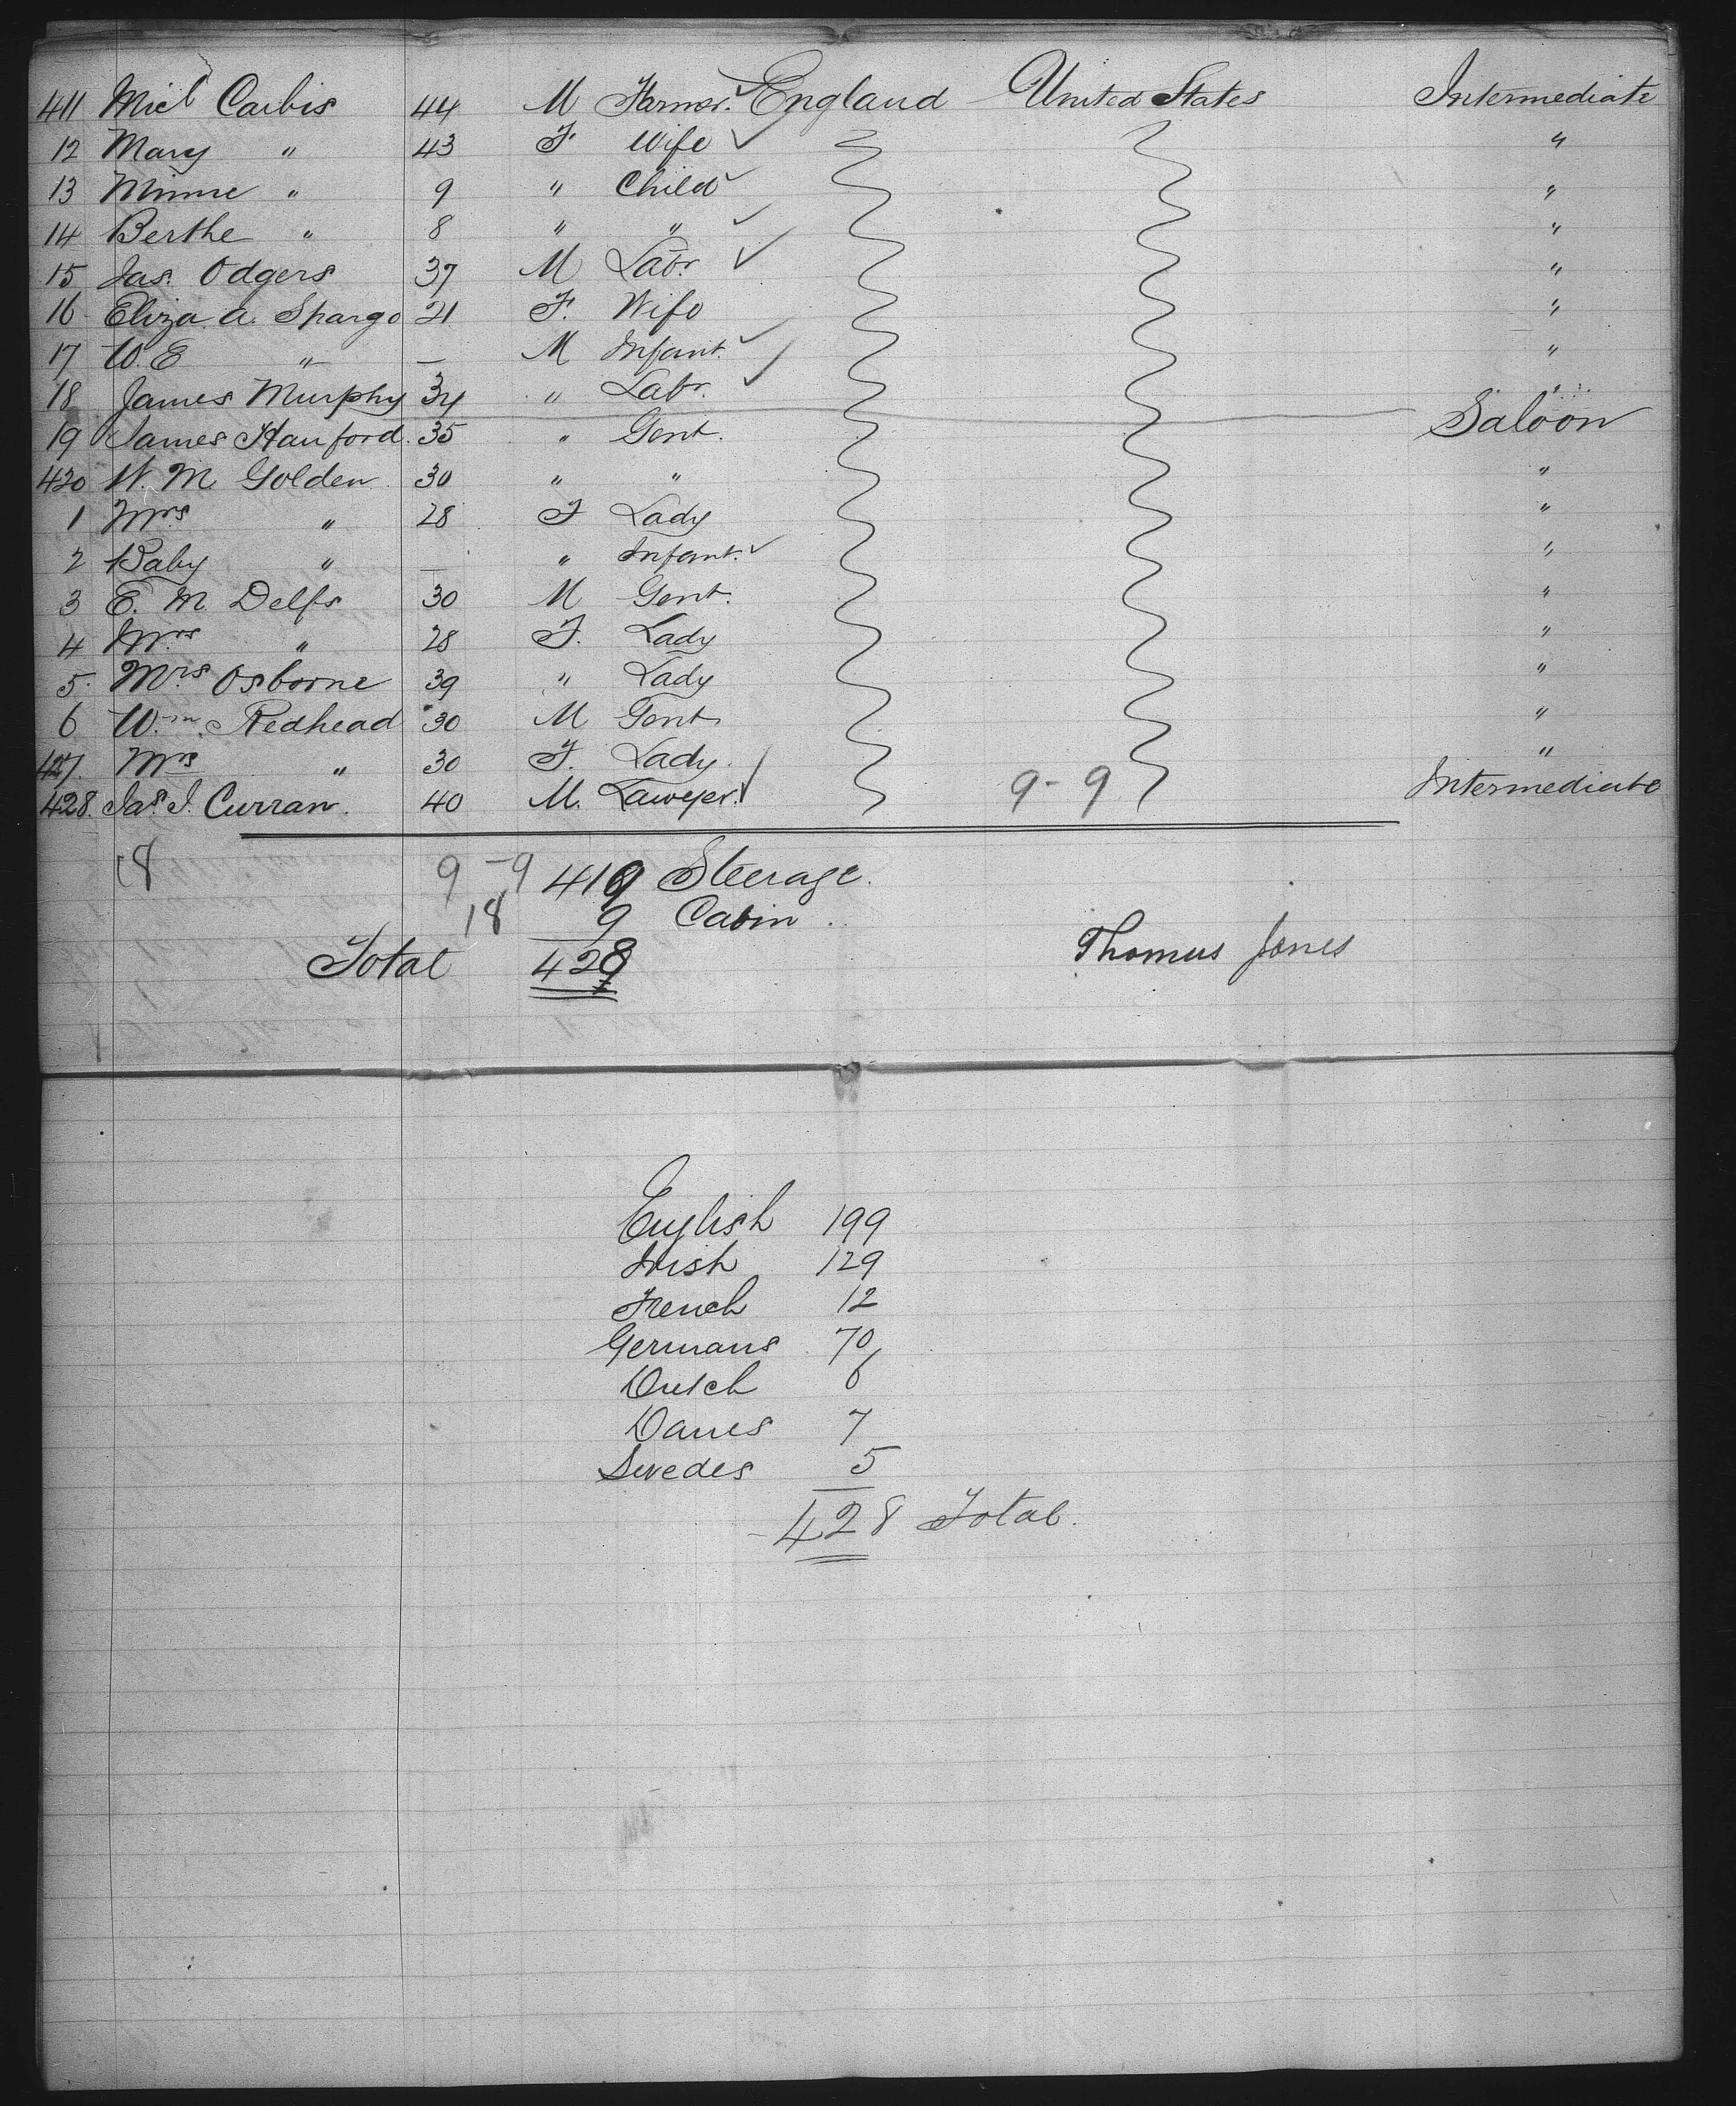 411 Micl Carbis 44 M Farmer. England United States Intermediate
12 Mary " 43 F Wife "
13 Minnie " 9 " Child "
14 Berthe " 8 " " "
15 Jas. Odgers 37 M Labr. "
16 Eliza A. Spargo 21 F. Wife "
17 W. E " — M Infant. "
18 James Murphy 34 " Labr. "
19 James Hanford. 35 " Gent. Saloon
420 W. M. Golden 30 " " "
1 Mrs " 28 F Lady "
2 Baby " — " Infant. "
3 E. M Delfs 30 M Gent. "
4 Mrs " 28 F. Lady "
5. Mrs Osborne 39 " Lady "
6 Wm. Redhead 30 M Gent "
427. Mrs " 30 F. Lady. "
428. Jas. J. Curran. 40 M. Lawyer. 9-9 Intermediate
18 9-9 419 Steerage.
18 9 Cabin.
Total 428 Thomas Jones
English 199
Irish 129
French 12
Germans 70
Dutch 6
Danes 7
Swedes 5
428 Total.